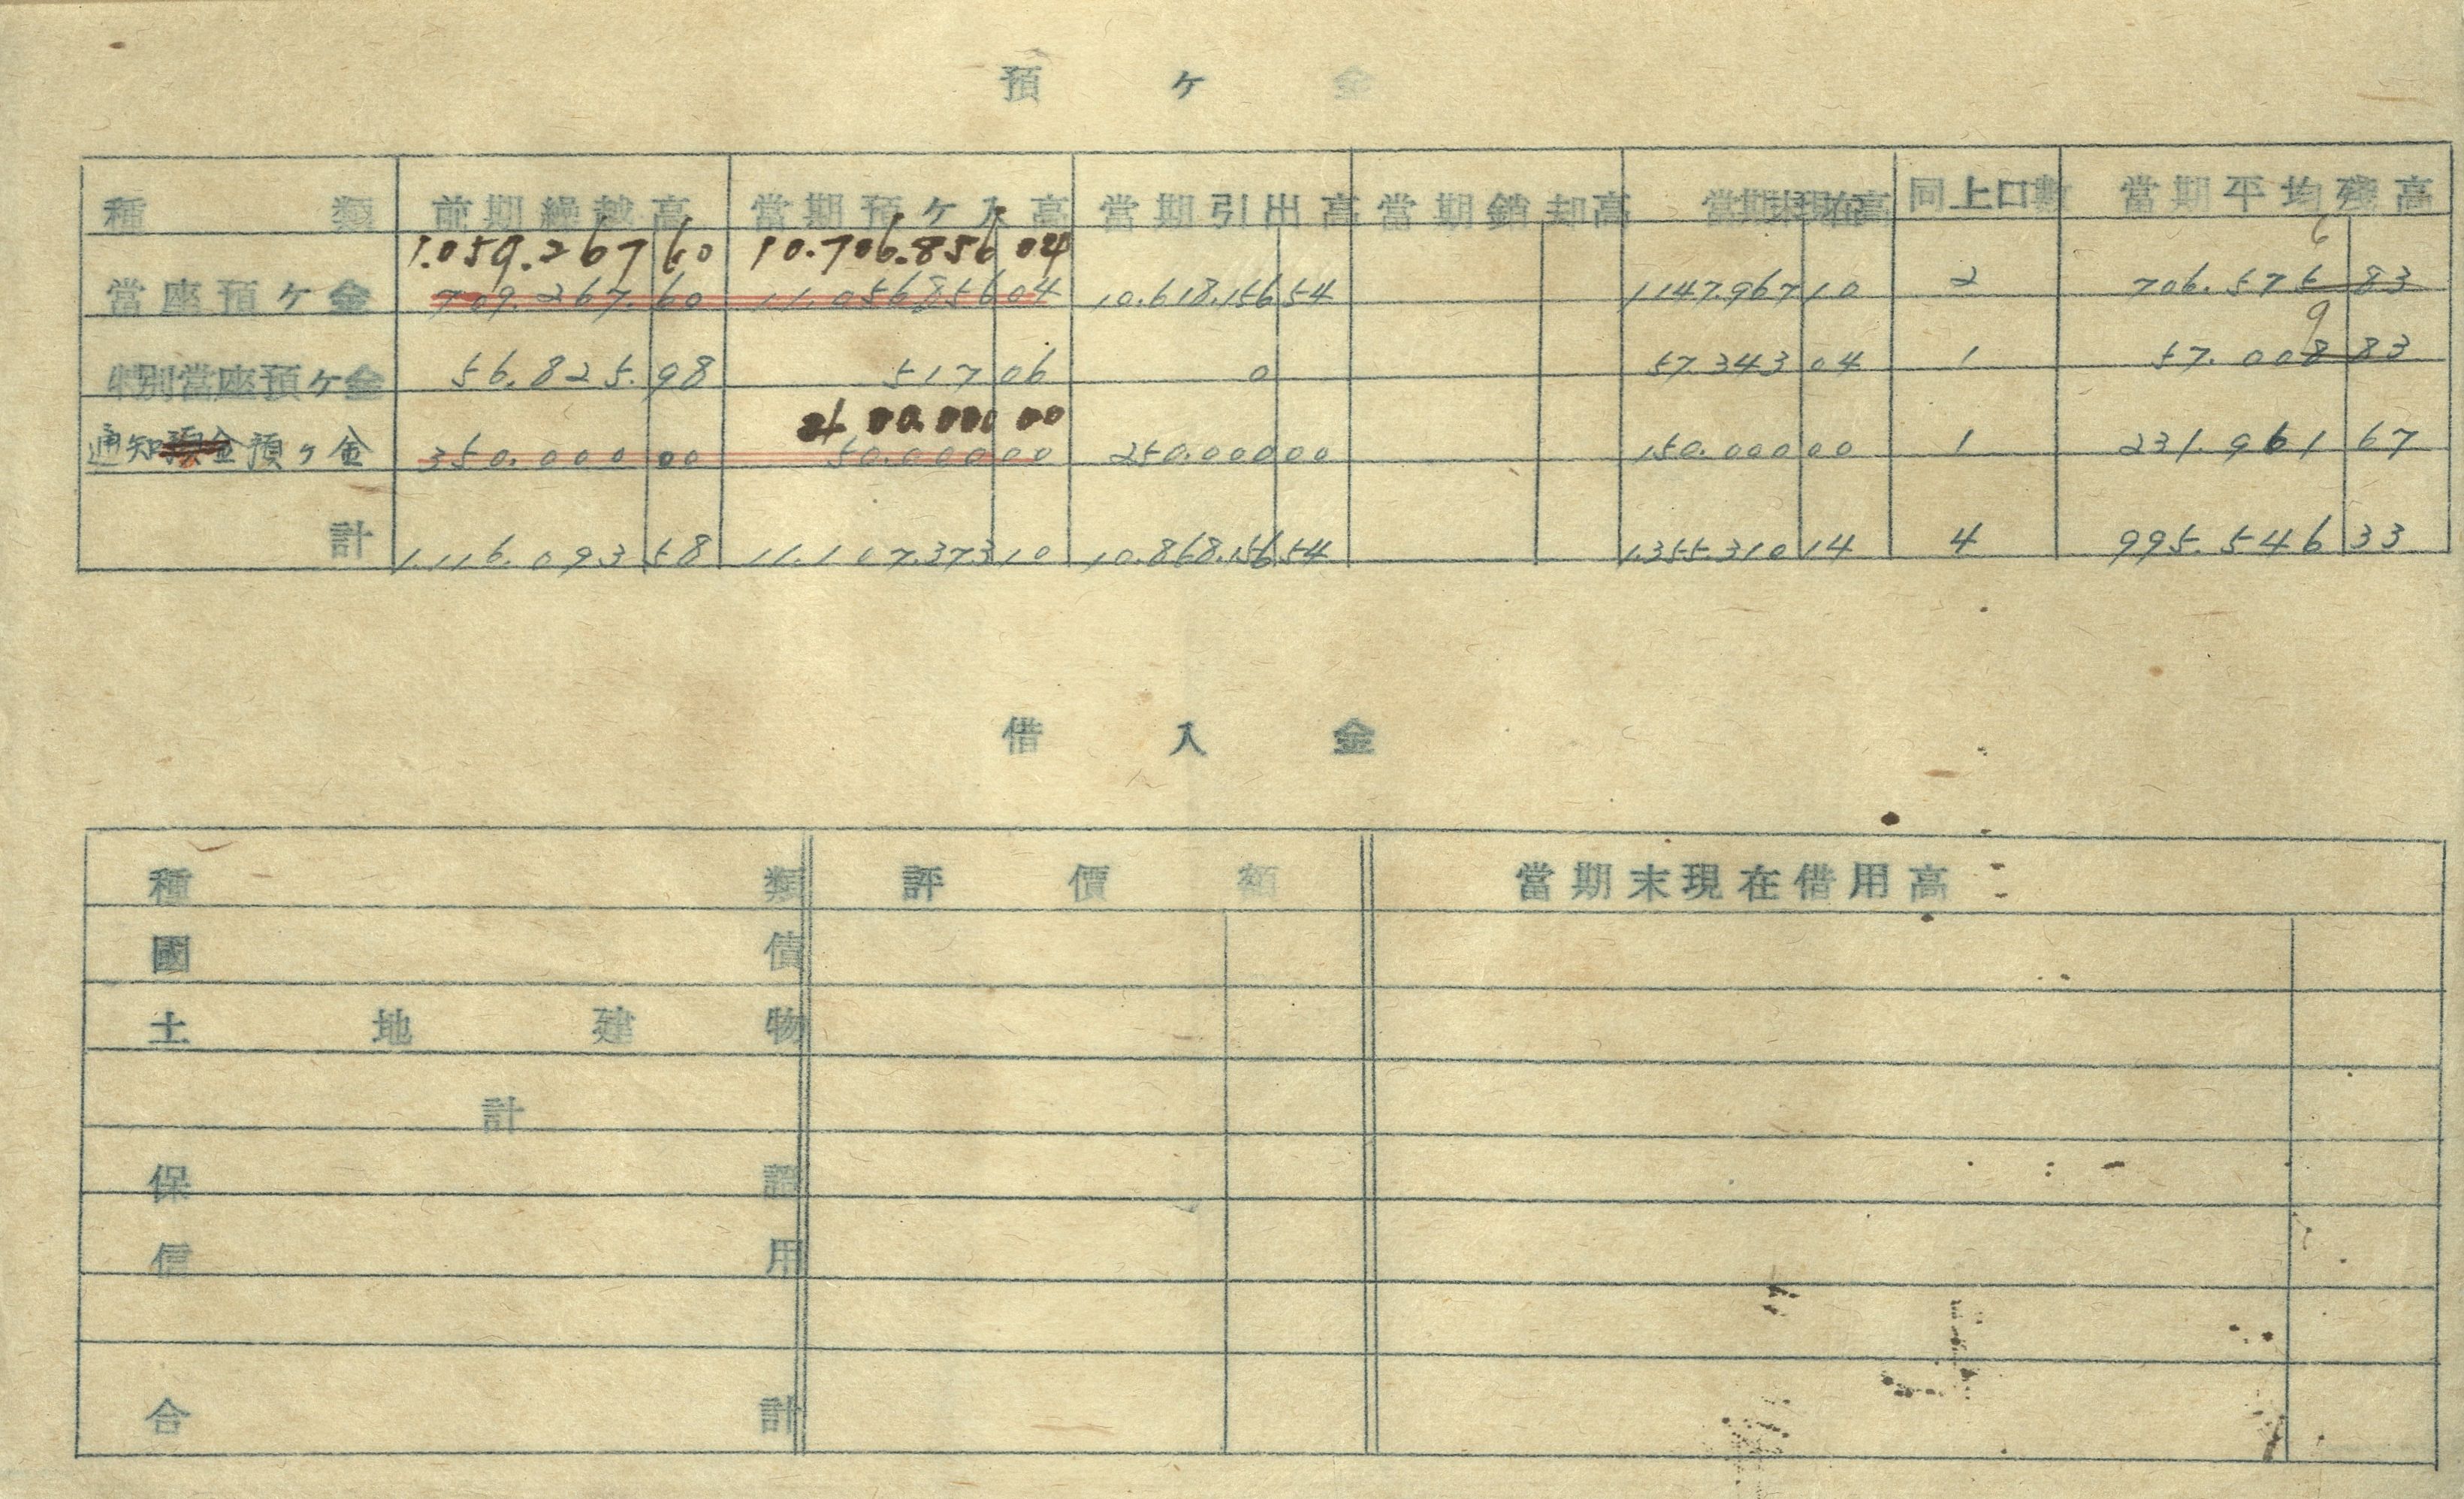 預ヶ金
種類 前期繰越高 當期預ヶ入高 當期引出高 當期銷却高 當期末現在高 同上口數 當期平均殘高
1.059.267 60 10.706.856 04
當座預ヶ金 709.267.60 11.056856 04 10.618.156 54 1147.967 10 2 706.575 83
6
特別當座預ヶ金 56.825.98 517 06 0 57.343 04 1 57.008 83
9
400.000 00
通知預金預ヶ金 350.000 00 50.000 00 250.000 00 150.000 00 1 231.961 67
計 1.116.093 58 11.107.373 10 10.868.156 54 1.355.310 14 4 995.546 33
借入金
種類 評價額 當期末現在借用高
國債
土地建物
計
保證
信用
合計